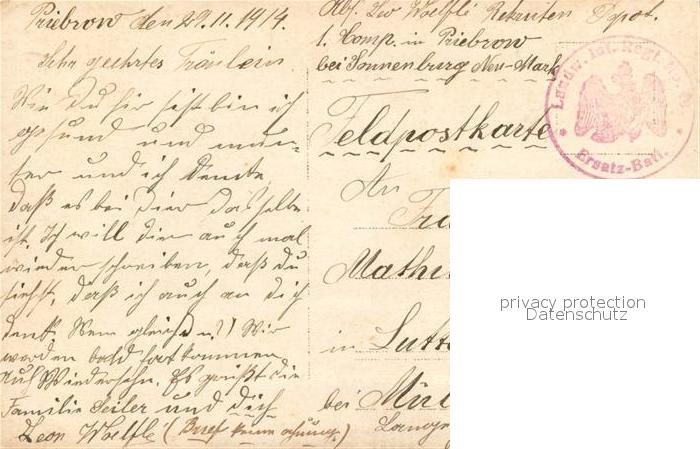 Priebrow den 29.11.1914.
Sehr geehrtes Fräulein
Wie Du hir sist bin ich
gesund und mun-
ter und ich denke,
daß es bei Dier dasselbe
ist. Ich will Dier auch mal
wieder schreiben, daß du
siehst, daß ich auch an dich
denk. Wem gleicht n.?) Wir
werden bald fortkommen
Auf Wiedersehn. Es grüßt die
Familie Seiler und dich
Leon Woelflé (Brief keine ahnung)
Abs. Leo Woelflé Rekruten Depot.
1. Comp. in Priebrow
bei Sonnenburg Neu-Mark
Feldpostkarte
An
in
bei
Landw. Inf. Regt. No.
Ersatz-Batl.
privacy protection
Datenschutz